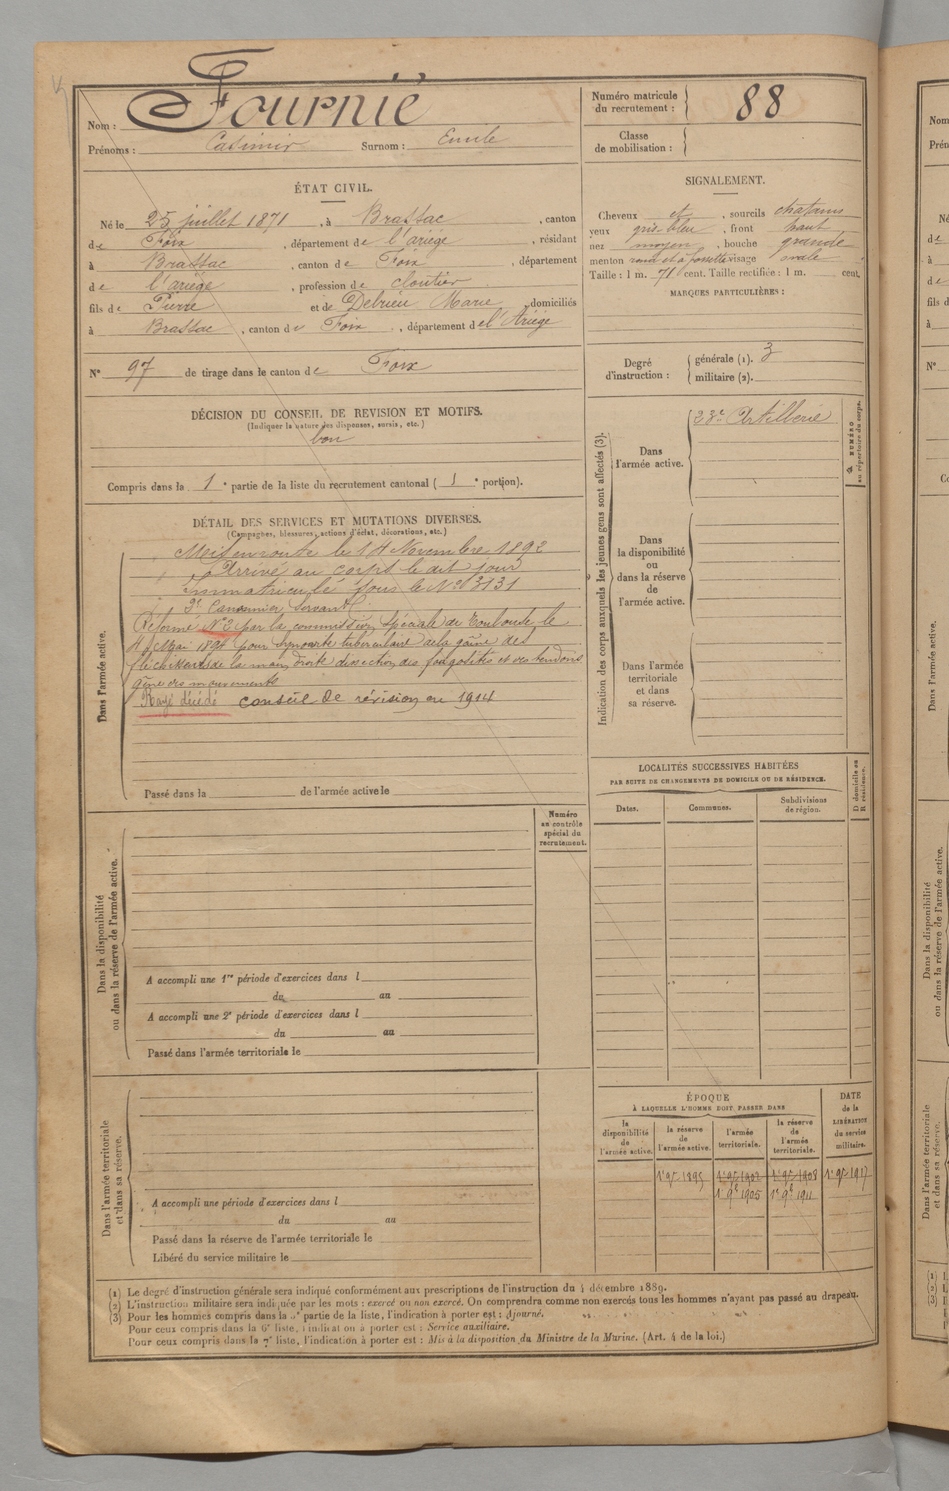 Nom : Fournié
Prénoms : Casimir Surnom : Emile
Numéro matricule du recrutement : 88
Classe de mobilisation :
ÉTAT CIVIL.
Né le 25 juillet 1871, à Brassac, canton
de Foix, département de l'ariège, résidant
à Brassac, canton de Foix, département
de l'ariège, profession de cloutier
fils de Pierre et de Debrieu Marie, domiciliés
à Brassac, canton de Foix, département de l'Ariège
N° 97 de tirage dans le canton de Foix
SIGNALEMENT.
Cheveux et, sourcils chatains
yeux gris-bleu, front haut
nez moyen, bouche grande
menton rond et à fossette visage ovale
Taille : 1 m. 71 cent. Taille rectifiée : 1 m. cent.
MARQUES PARTICULIÈRES :
Degré d'instruction : générale (1). 3
militaire (2).
DÉCISION DU CONSEIL DE REVISION ET MOTIFS.
(Indiquer la nature des dispenses, sursis, etc.)
bon
Compris dans la 1e partie de la liste du recrutement cantonal ( 1e portion).
DÉTAIL DES SERVICES ET MUTATIONS DIVERSES.
(Campagnes, blessures, actions d'éclat, décorations, etc.)
Dans l'armée active.
Mis en route le 14 Novembre 1892
Arrivé au corps le dit jour
Immatriculé sous le N° 3131
2e Canonnier Servant
Réformé N° 2 par la commission spéciale de Toulouse le
Mai 1894 pour synovite tuberculaire de la gaîne des
fléchisseurs de la main droite dissection des fongosités et des tendons
gêne des mouvements
Rayé décédé conseil de révision en 1914
Passé dans la de l'armée active le
Indication des corps auxquels les jeunes gens sont affectés (3).
Dans l'armée active.
23e Artillerie
NUMÉRO au répertoire du corps.
Dans la disponibilité ou dans la réserve de l'armée active.
Dans l'armée territoriale et dans sa réserve.
LOCALITÉS SUCCESSIVES HABITÉES
PAR SUITE DE CHANGEMENTS DE DOMICILE OU DE RÉSIDENCE.
Dates. Communes. Subdivisions de région. D domicile ou R résidence.
Numéro au contrôle spécial du recrutement.
Dans la disponibilité ou dans la réserve de l'armée active.
A accompli une 1re période d'exercices dans l
du au
A accompli une 2e période d'exercices dans l
du au
Passé dans l'armée territoriale le
Dans l'armée territoriale et dans sa réserve.
A accompli une période d'exercices dans l
du au
Passé dans la réserve de l'armée territoriale le
Libéré du service militaire le
ÉPOQUE
À LAQUELLE L'HOMME DOIT PASSER DANS
la disponibilité de l'armée active. la réserve de l'armée active. l'armée territoriale. la réserve de l'armée territoriale. DATE de la LIBÉRATION du service militaire.
1er 9bre 1895 1er 9bre 1902 1er 9bre 1908 1er 9bre 1917
1er 9bre 1905 1er 9bre 1911
(1) Le degré d'instruction générale sera indiqué conformément aux prescriptions de l'instruction du 4 décembre 1889.
(2) L'instruction militaire sera indiquée par les mots : exercé ou non exercé. On comprendra comme non exercés tous les hommes n'ayant pas passé au drapeau.
(3) Pour les hommes compris dans la 5e partie de la liste, l'indication à porter est : Ajourné.
Pour ceux compris dans la 6e liste, l'indication à porter est : Service auxiliaire.
Pour ceux compris dans la 7e liste, l'indication à porter est : Mis à la disposition du Ministre de la Marine. (Art. 4 de la loi.)